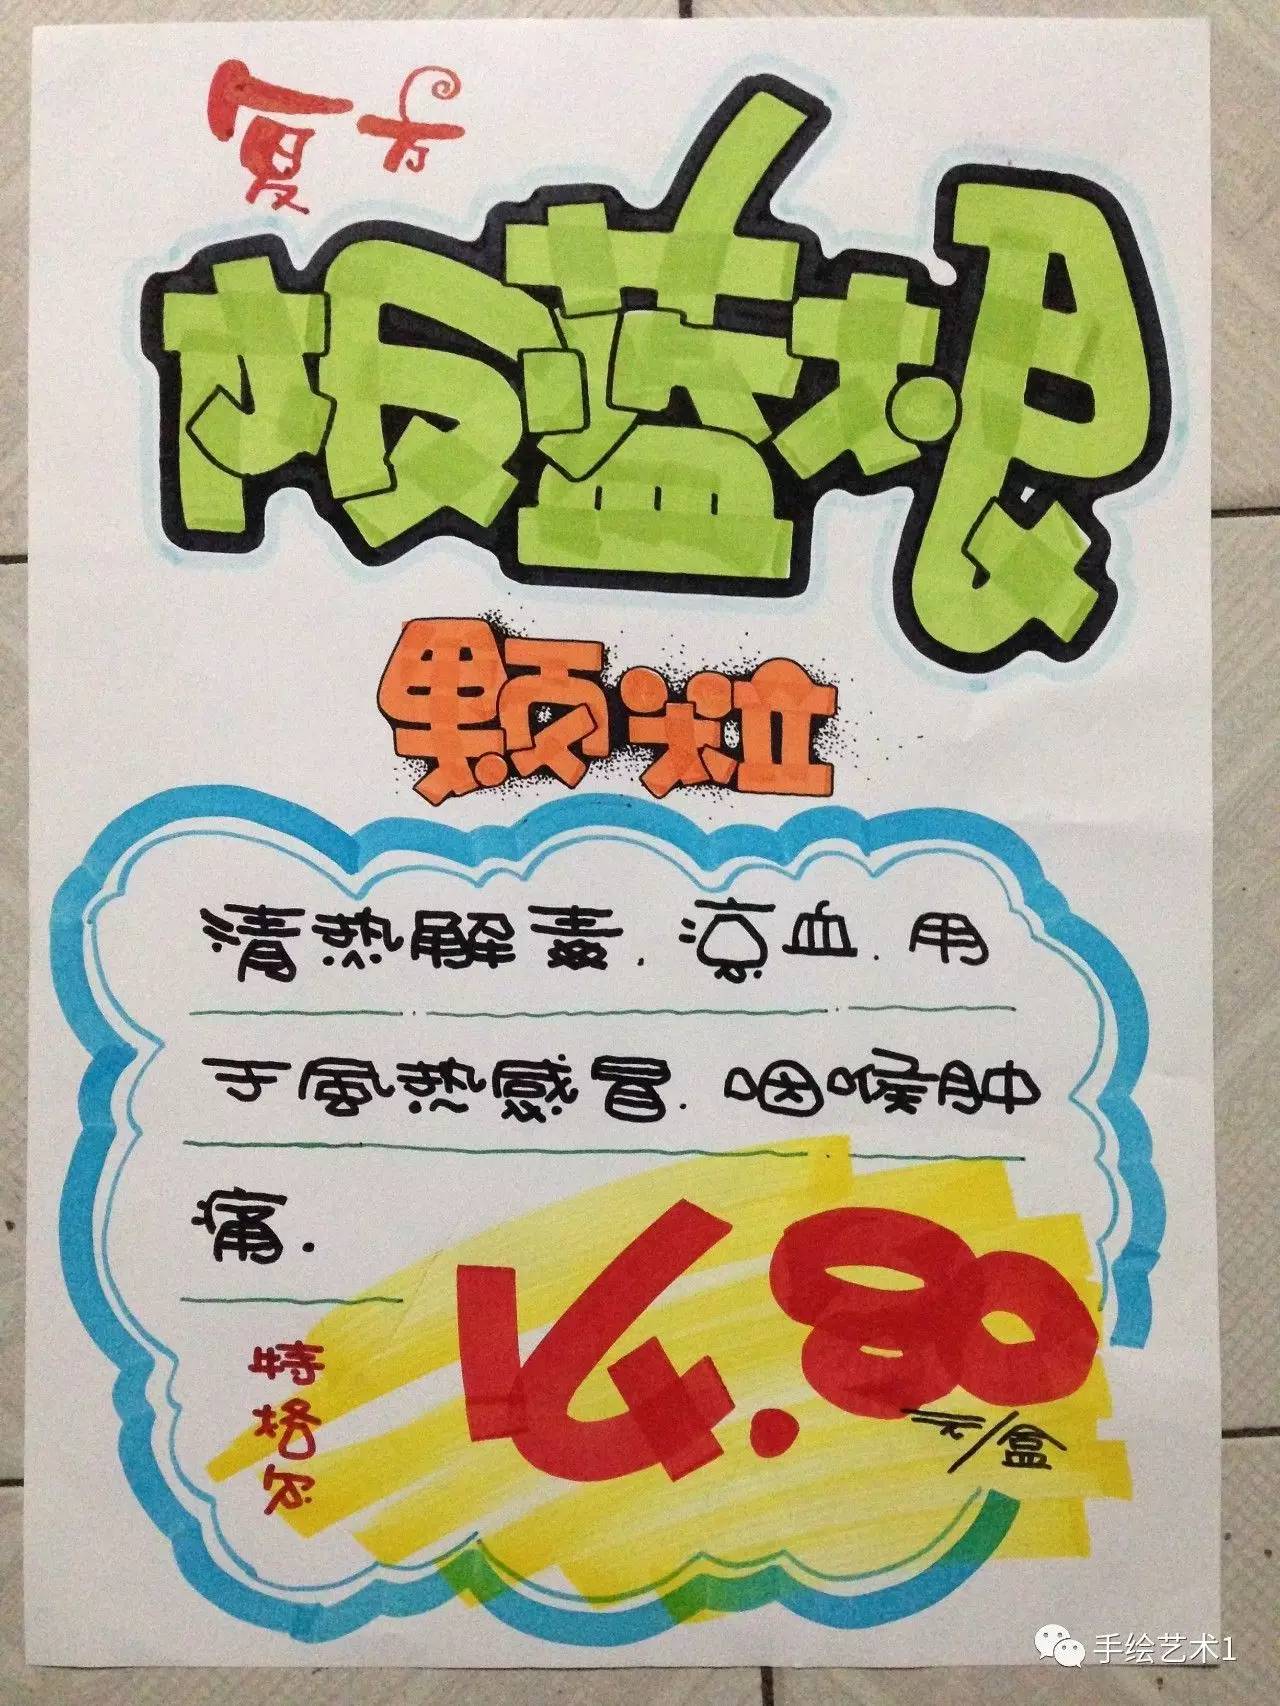 复方
板蓝根
颗粒
清热解毒.凉血.用
于風热感冒.咽喉肿
痛.
特
格
尔
4.80
元/盒
手绘艺术1